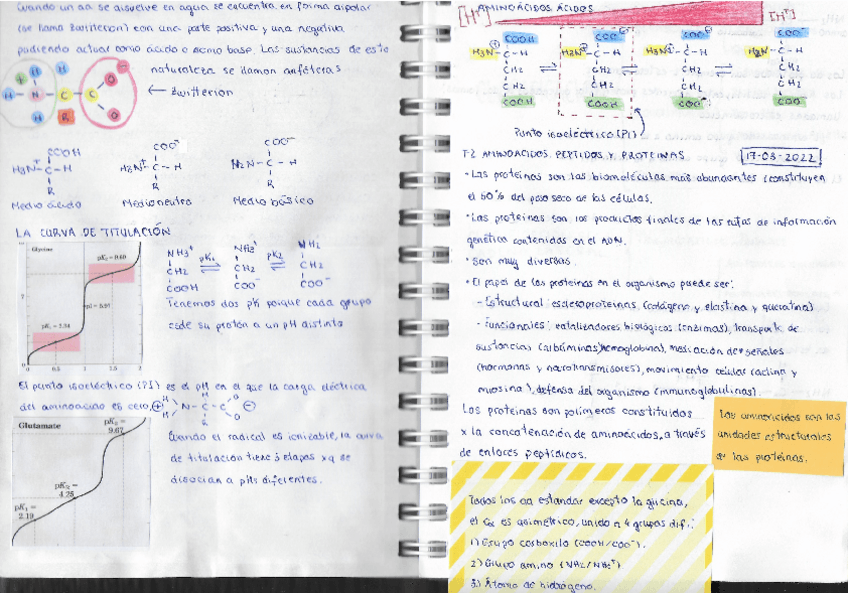 Cuando un aa se disuelve en agua se encuentra en forma dipolar
(se llama Zwitterion) con una parte positiva y una negativa
pudiendo actuar como ácido o como base. Las sustancias de esta
naturaleza se llaman anfóteras
← Zwitterion
H H H O
H N C C
H R O
COOH
H3N+ - C - H
R
Medio ácido
COO-
H3N+ - C - H
R
Medio neutro
COO-
H2N - C - H
R
Medio básico
LA CURVA DE TITULACIÓN
Glycine
pK2 = 9.60
pI = 5.97
pK1 = 2.34
7
0 0.5 1 1.5 2
NH3+
CH2
COOH
pK1
NH3+
CH2
COO-
pK2
NH2
CH2
COO-
Tenemos dos pK porque cada grupo
cede su protón a un pH distinto
El punto isoeléctrico (PI) es el pH en el que la carga eléctrica
del aminoácido es cero.
Glutamate
pK3 = 9.67
pK2 = 4.25
pK1 = 2.19
Cuando el radical es ionizable, la curva
de titulación tiene 3 etapas xq se
disocian a pHs diferentes.
[H+] AMINOÁCIDOS ÁCIDOS [H+]
COOH COO- COO- COO-
H3N+ - C - H H3N+ - C - H H3N+ - C - H H2N - C - H
CH2 CH2 CH2 CH2
COOH COOH COO- COO-
Punto isoeléctrico (PI)
T-2 AMINOÁCIDOS, PEPTIDOS Y PROTEINAS
17-03-2022
• Las proteínas son las biomoléculas más abundantes (constituyen
el 50% del peso seco de las células.
• Las proteínas son los productos finales de las rutas de información
genética contenidas en el ADN.
• Son muy diversas.
• El papel de las proteínas en el organismo puede ser:
- Estructural: escleroproteínas (colágeno y elastina y queratina)
- Funcionales: catalizadores biológicos (enzimas), transporte de
sustancias (albúminas/hemoglobina), mediación de señales
(hormonas y neurotransmisores), movimiento celular (actina y
miosina), defensa del organismo (inmunoglobulinas).
Las proteínas son polímeros constituidos
x la concatenación de aminoácidos, a través
de enlaces peptídicos.
Los aminoácidos son las
unidades estructurales
de las proteínas.
Todos los aa estandar excepto la glicina,
el Cα es asimétrico, unido a 4 grupos dif.:
1) Grupo carboxilo (COOH/COO-).
2) Grupo amino (NH2/NH3+)
3) Átomo de hidrógeno.